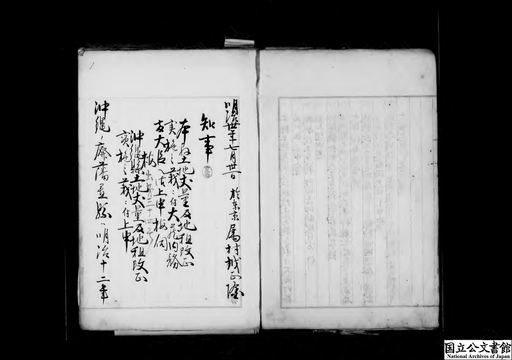 明治廿年七月廿日 於東京 属村城正隆
知事
本縣土地丈量及地租改正
実施之義ニ付大蔵内務
両大臣ヘ上申按伺
按
沖縄縣土地丈量及地租改正
実施之義ニ付上申
沖縄ノ廃藩置縣ハ明治十二年
国立公文書館
National Archives of Japan